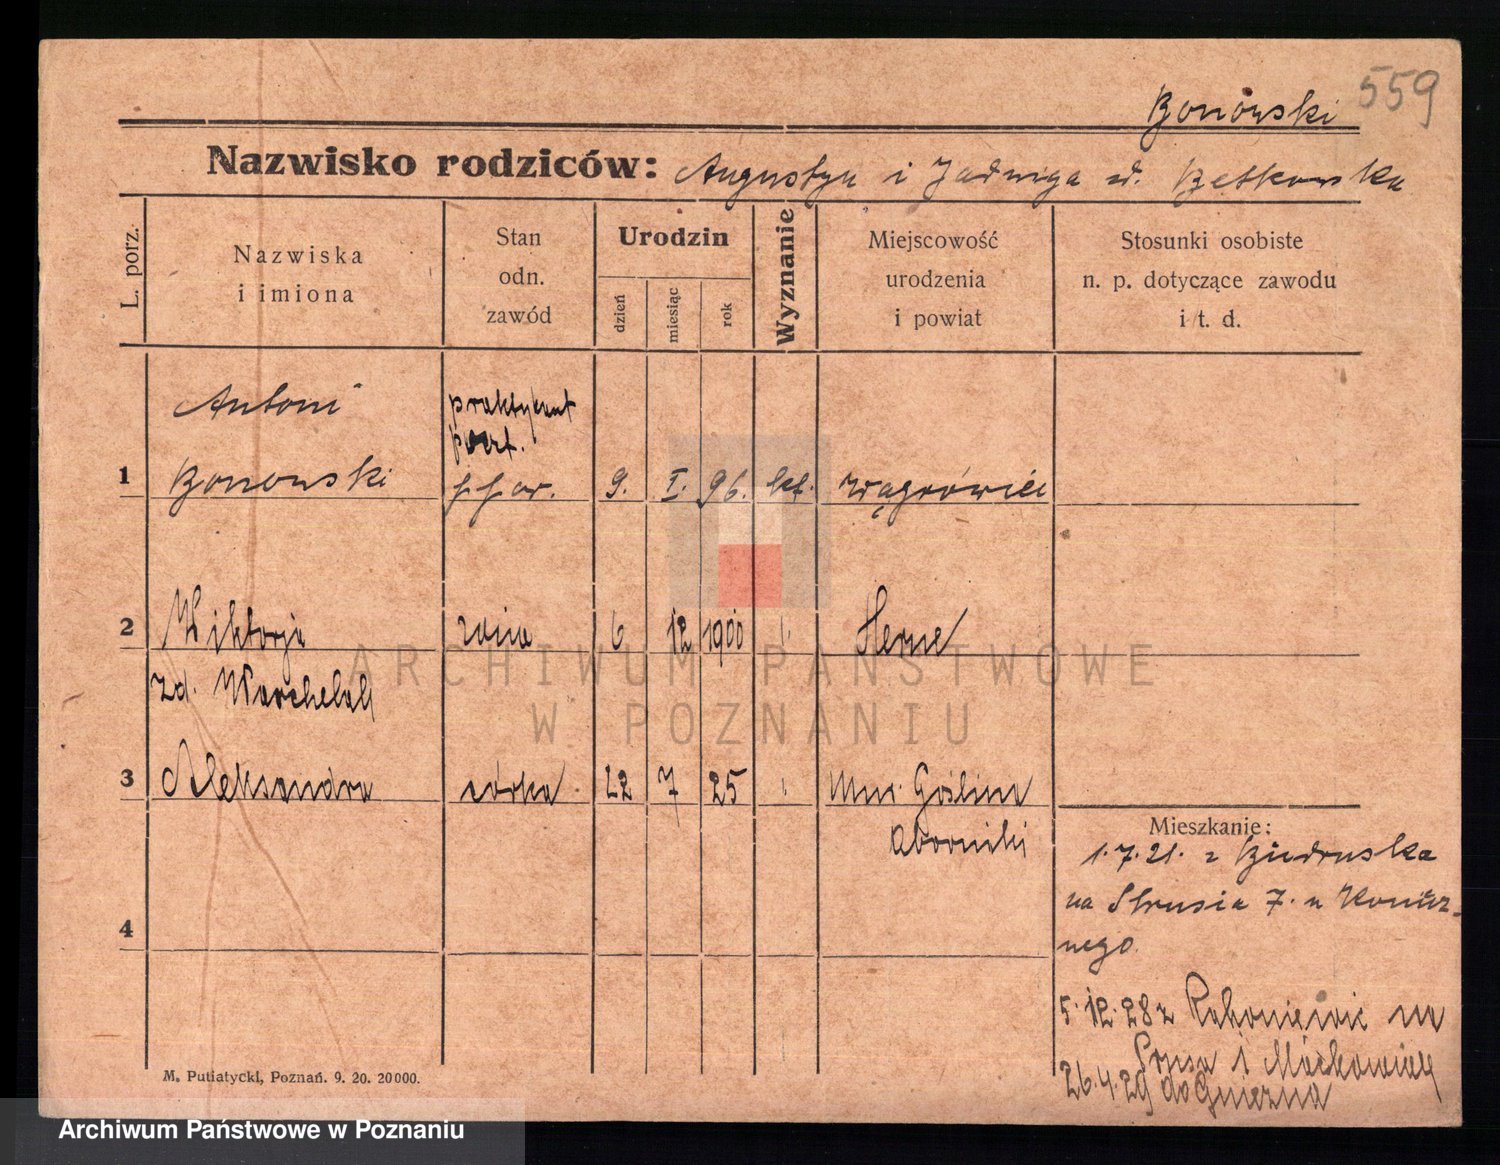 559
Bonowski
Nazwisko rodziców: Augustyn i Jadwiga zd. Betkowska
L. porz.
Nazwiska
i imiona
Stan
odn.
zawód
Urodzin
dzień
miesiąc
rok
Wyznanie
Miejscowość
urodzenia
i powiat
Stosunki osobiste
n. p. dotyczące zawodu
i t. d.
Antoni praktykant
poczt.
1 Bonowski 9. I. 96. kt. Wągrówiec
2 Wiktorja żona 6 12 1900 Herne
zd. Warchelak
3 Aleksandra córka 22 7 25 Mur. Goślina
Oborniki
4
Mieszkanie:
1.7.21. z Biedruska
na Strusia 7. u Konicz-
nego.
5.12.28 z Rakoniewic na
Prusa 1 Maćkowiak
26.4.29 do Gniezna
M. Putiatycki, Poznań. 9. 20. 20000.
ARCHIWUM PAŃSTWOWE
W POZNANIU
Archiwum Państwowe w Poznaniu